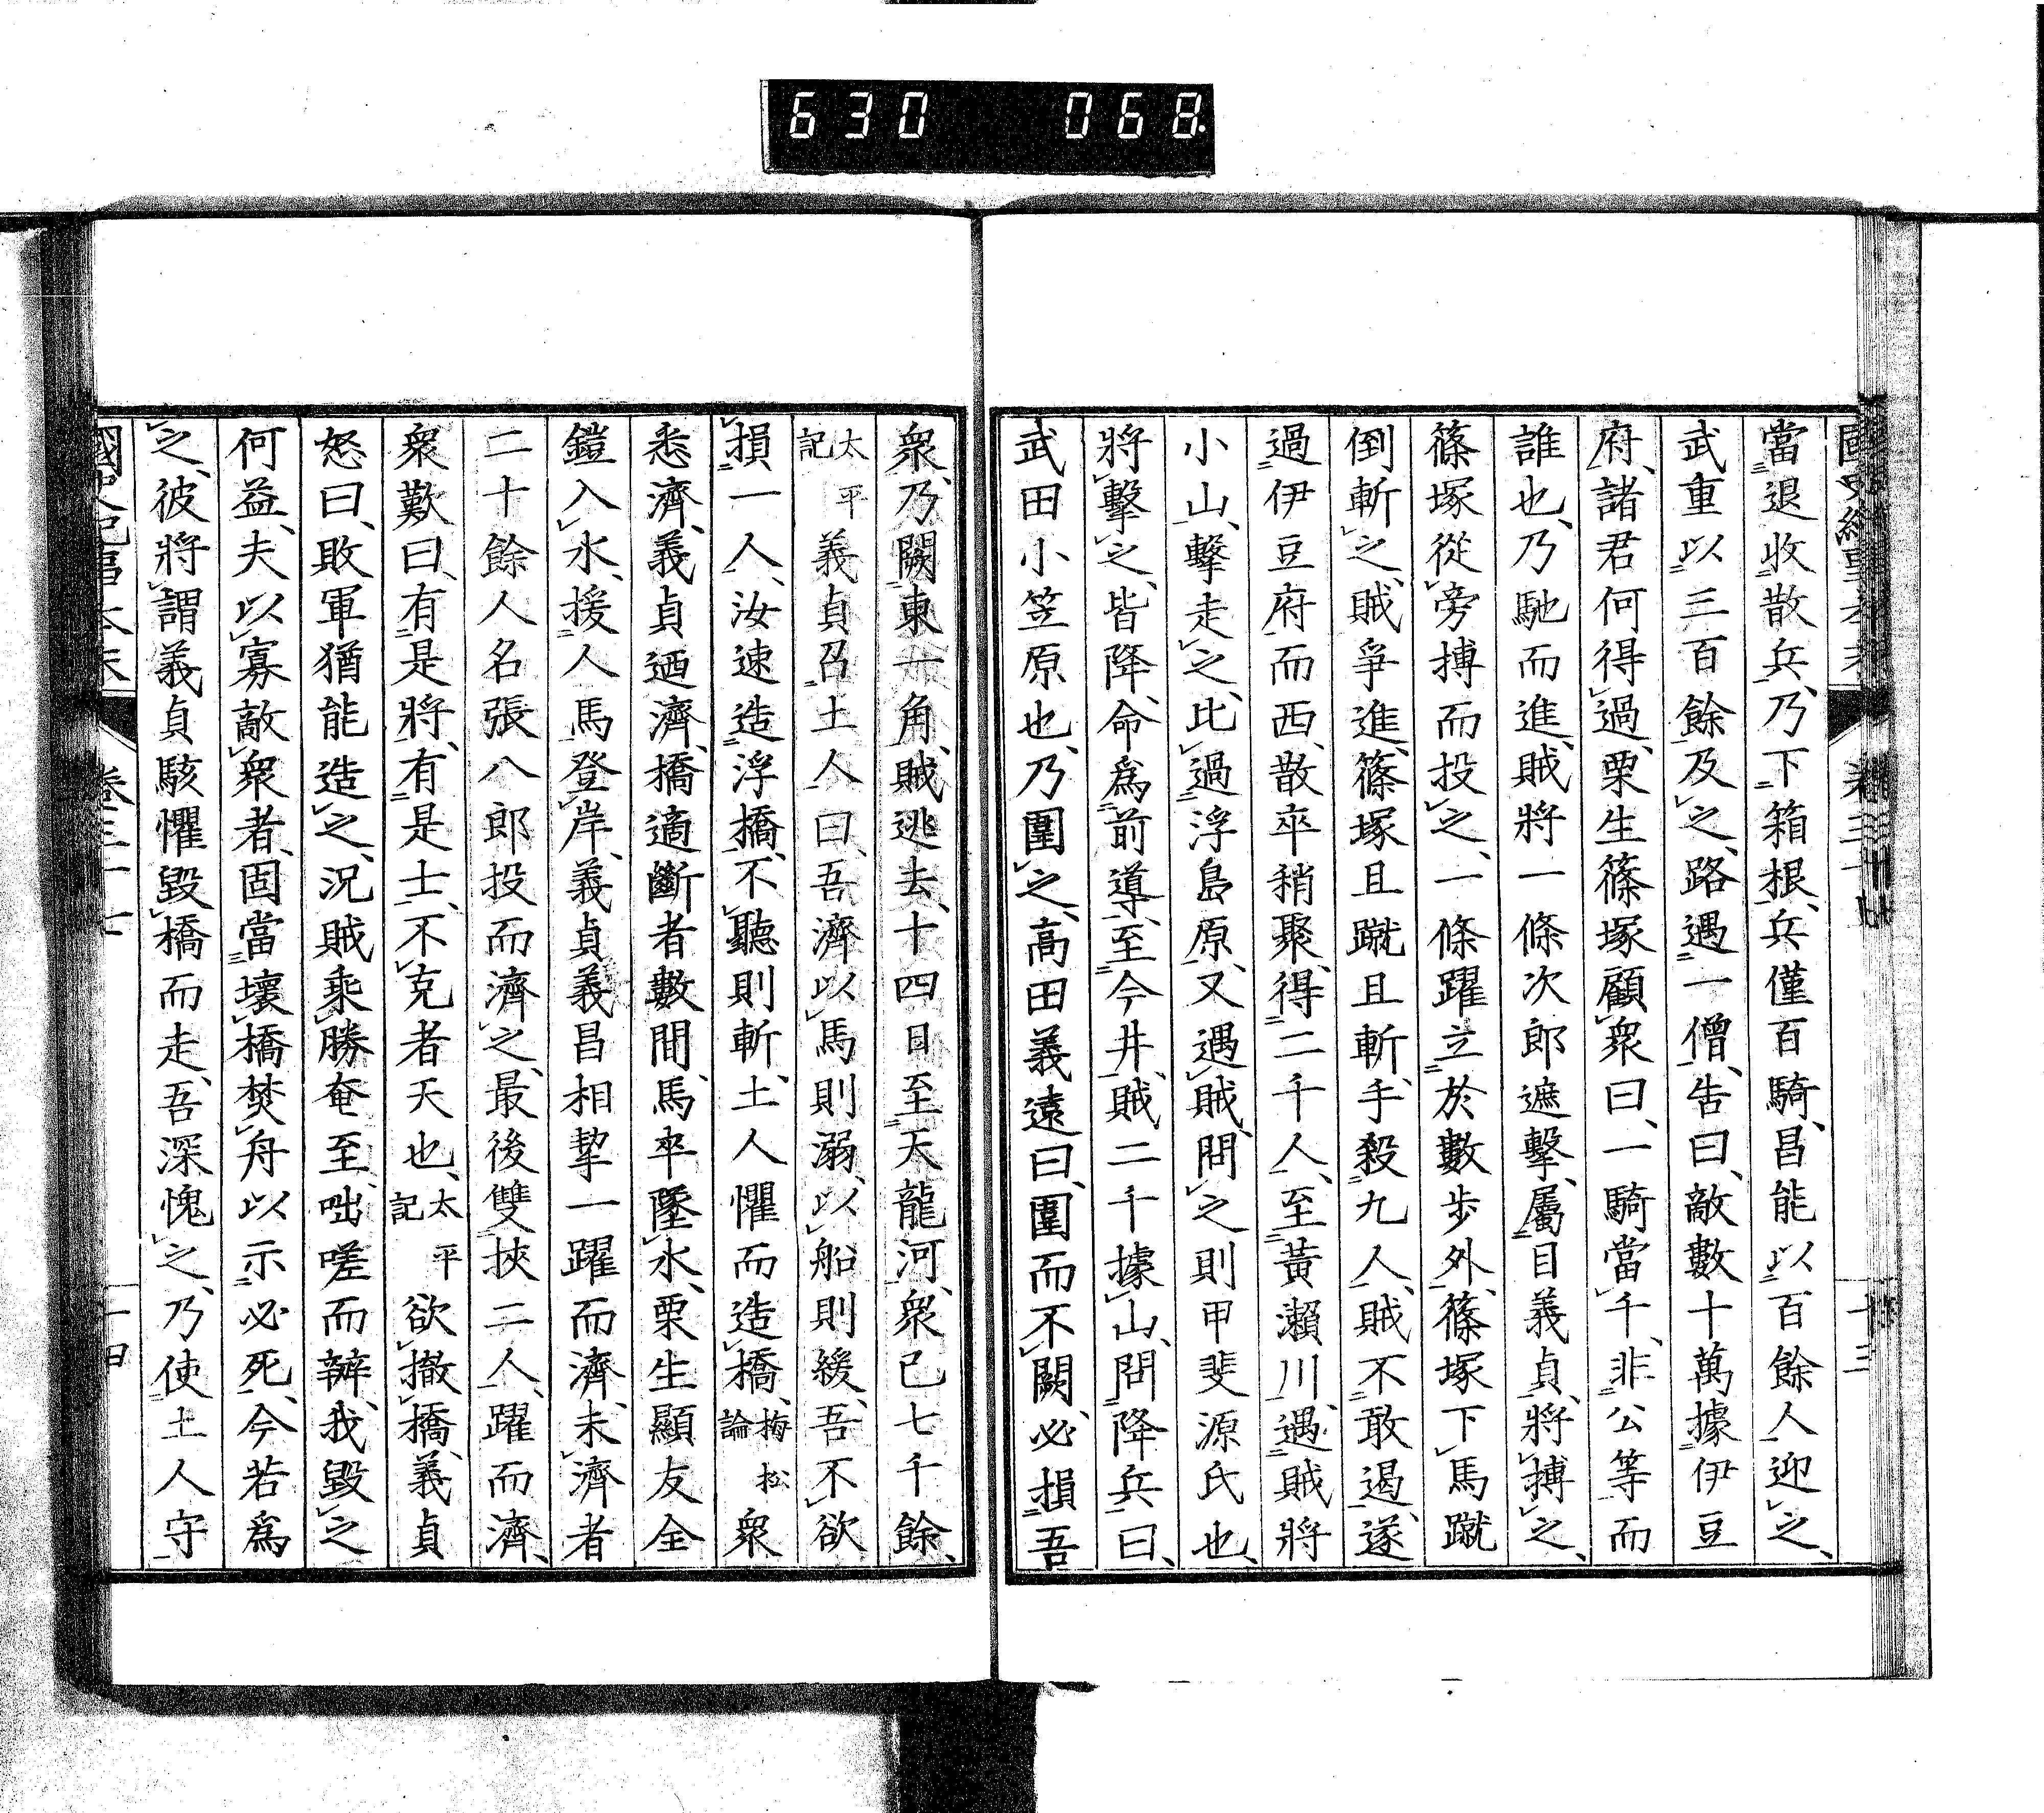 630 068
當退收散兵、乃下箱根、兵僅百騎、昌能以百餘人迎之、
武重以三百餘及之、路遇一僧、告曰、敵數十萬據伊豆
府、諸君何得過、栗生篠塚顧衆曰、一騎當千、非公等而
誰也、乃馳而進、賊將一條次郎遮擊、屬目義貞、將搏之、
篠塚從旁搏而投之、一條躍立於數步外、篠塚下馬蹴
倒斬之、賊爭進、篠塚且蹴且斬、手殺九人、賊不敢遏、遂
過伊豆府而西、散卒稍聚、得二千人、至黃瀨川、遇賊將
小山、擊走之、比過浮島原、又遇賊、問之則甲斐源氏也、
將擊之、皆降、命爲前導、至今井、賊二千據山、問降兵曰、
武田小笠原也、乃圍之、高田義遠曰、圍而不闕、必損吾
衆、乃闕東一角、賊逃去、十四日至天龍河、衆已七千餘、
太平記 義貞召土人曰、吾濟以馬則溺、以船則緩、吾不欲
損一人、汝速造浮橋、不聽則斬、土人懼而造橋、梅松論 衆
悉濟、義貞迺濟、橋適斷者數間、馬卒墜水、栗生顯友全
鎧入水、援人馬登岸、義貞義昌相挈一躍而濟、未濟者
二十餘人名張八郎投而濟之、最後雙挾二人、躍而濟、
衆歎曰、有是將、有是士、不克者天也、太平記 欲撤橋、義貞
怒曰、敗軍猶能造之、況賊乘勝奄至、咄嗟而辨、我毀之
何益、夫以寡敵衆者、固當壞橋焚舟以示必死、今若爲
之、彼將謂義貞駭懼毀橋而走、吾深愧之、乃使土人守